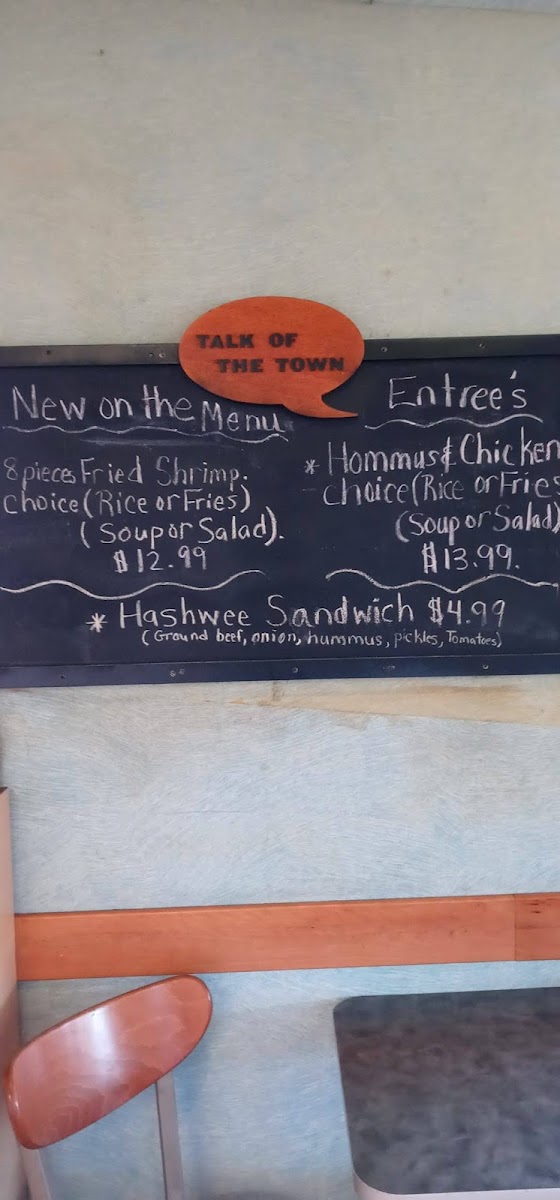 TALK OF
THE TOWN
New on the Menu
8 pieces Fried Shrimp.
choice (Rice or Fries)
(Soup or Salad).
$12.99
Entree's
* Hommus & Chicken
choice (Rice or Fries
(Soup or Salad)
$13.99.
* Hashwee Sandwich $4.99
(Ground beef, onion, hummus, pickles, Tomatoes)